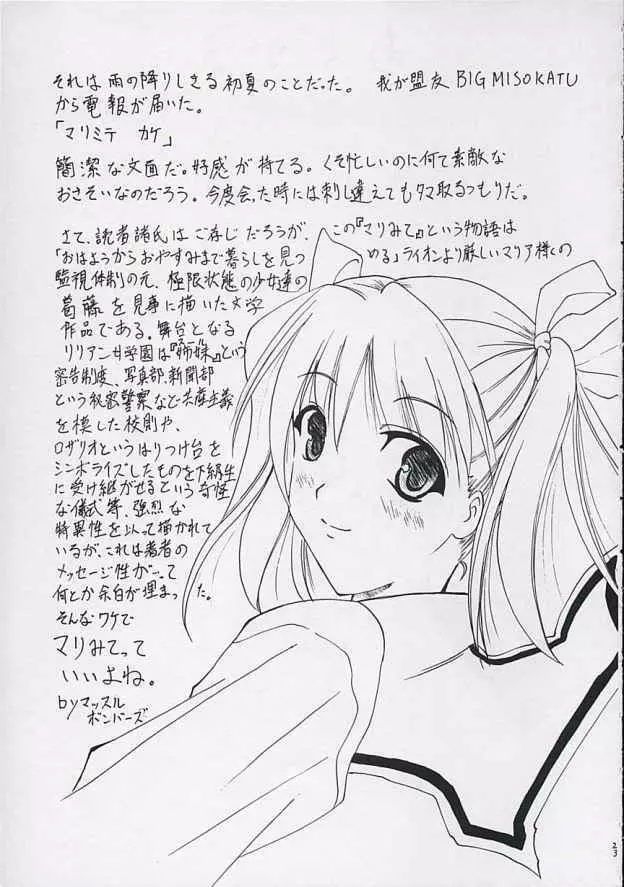 それは雨の降りしきる初夏のことだった。 我が盟友 BIG MISOKATU
から電報が届いた。
「マリミテ カケ」
簡潔な文面だ。好感が持てる。くそ忙しいのに何て素敵な
おさそいなのだろう。今度会った時には刺し違えてもタマ取るつもりだ。
さて、読者諸氏はご存じだろうが、この『マリみて』という物語は
「おはようからおやすみまで暮らしを見つめる」ライオンより厳しいマリア様の
監視体制の元、極限状態の少女達の
葛藤を見事に描いた文学
作品である。舞台となる
リリアン女学園は『姉妹』という
密告制度、写真部、新聞部
という秘密警察など共産主義
を模した校則や、
ロザリオというはりつけ台を
シンボライズしたものを下級生
に受け継がせるという奇性
な儀式等、強烈な
特異性を以って描かれて
いるが、これは著者の
メッセージ性が…って
何とか余白が埋まった。
そんなワケで
マリみてって
いいよね。
byマッスル
ボンバーズ
23